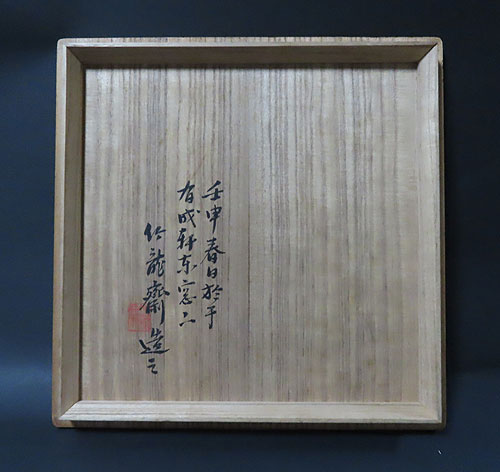 壬申春日於于
有成軒東窓下
竹龍齋造之